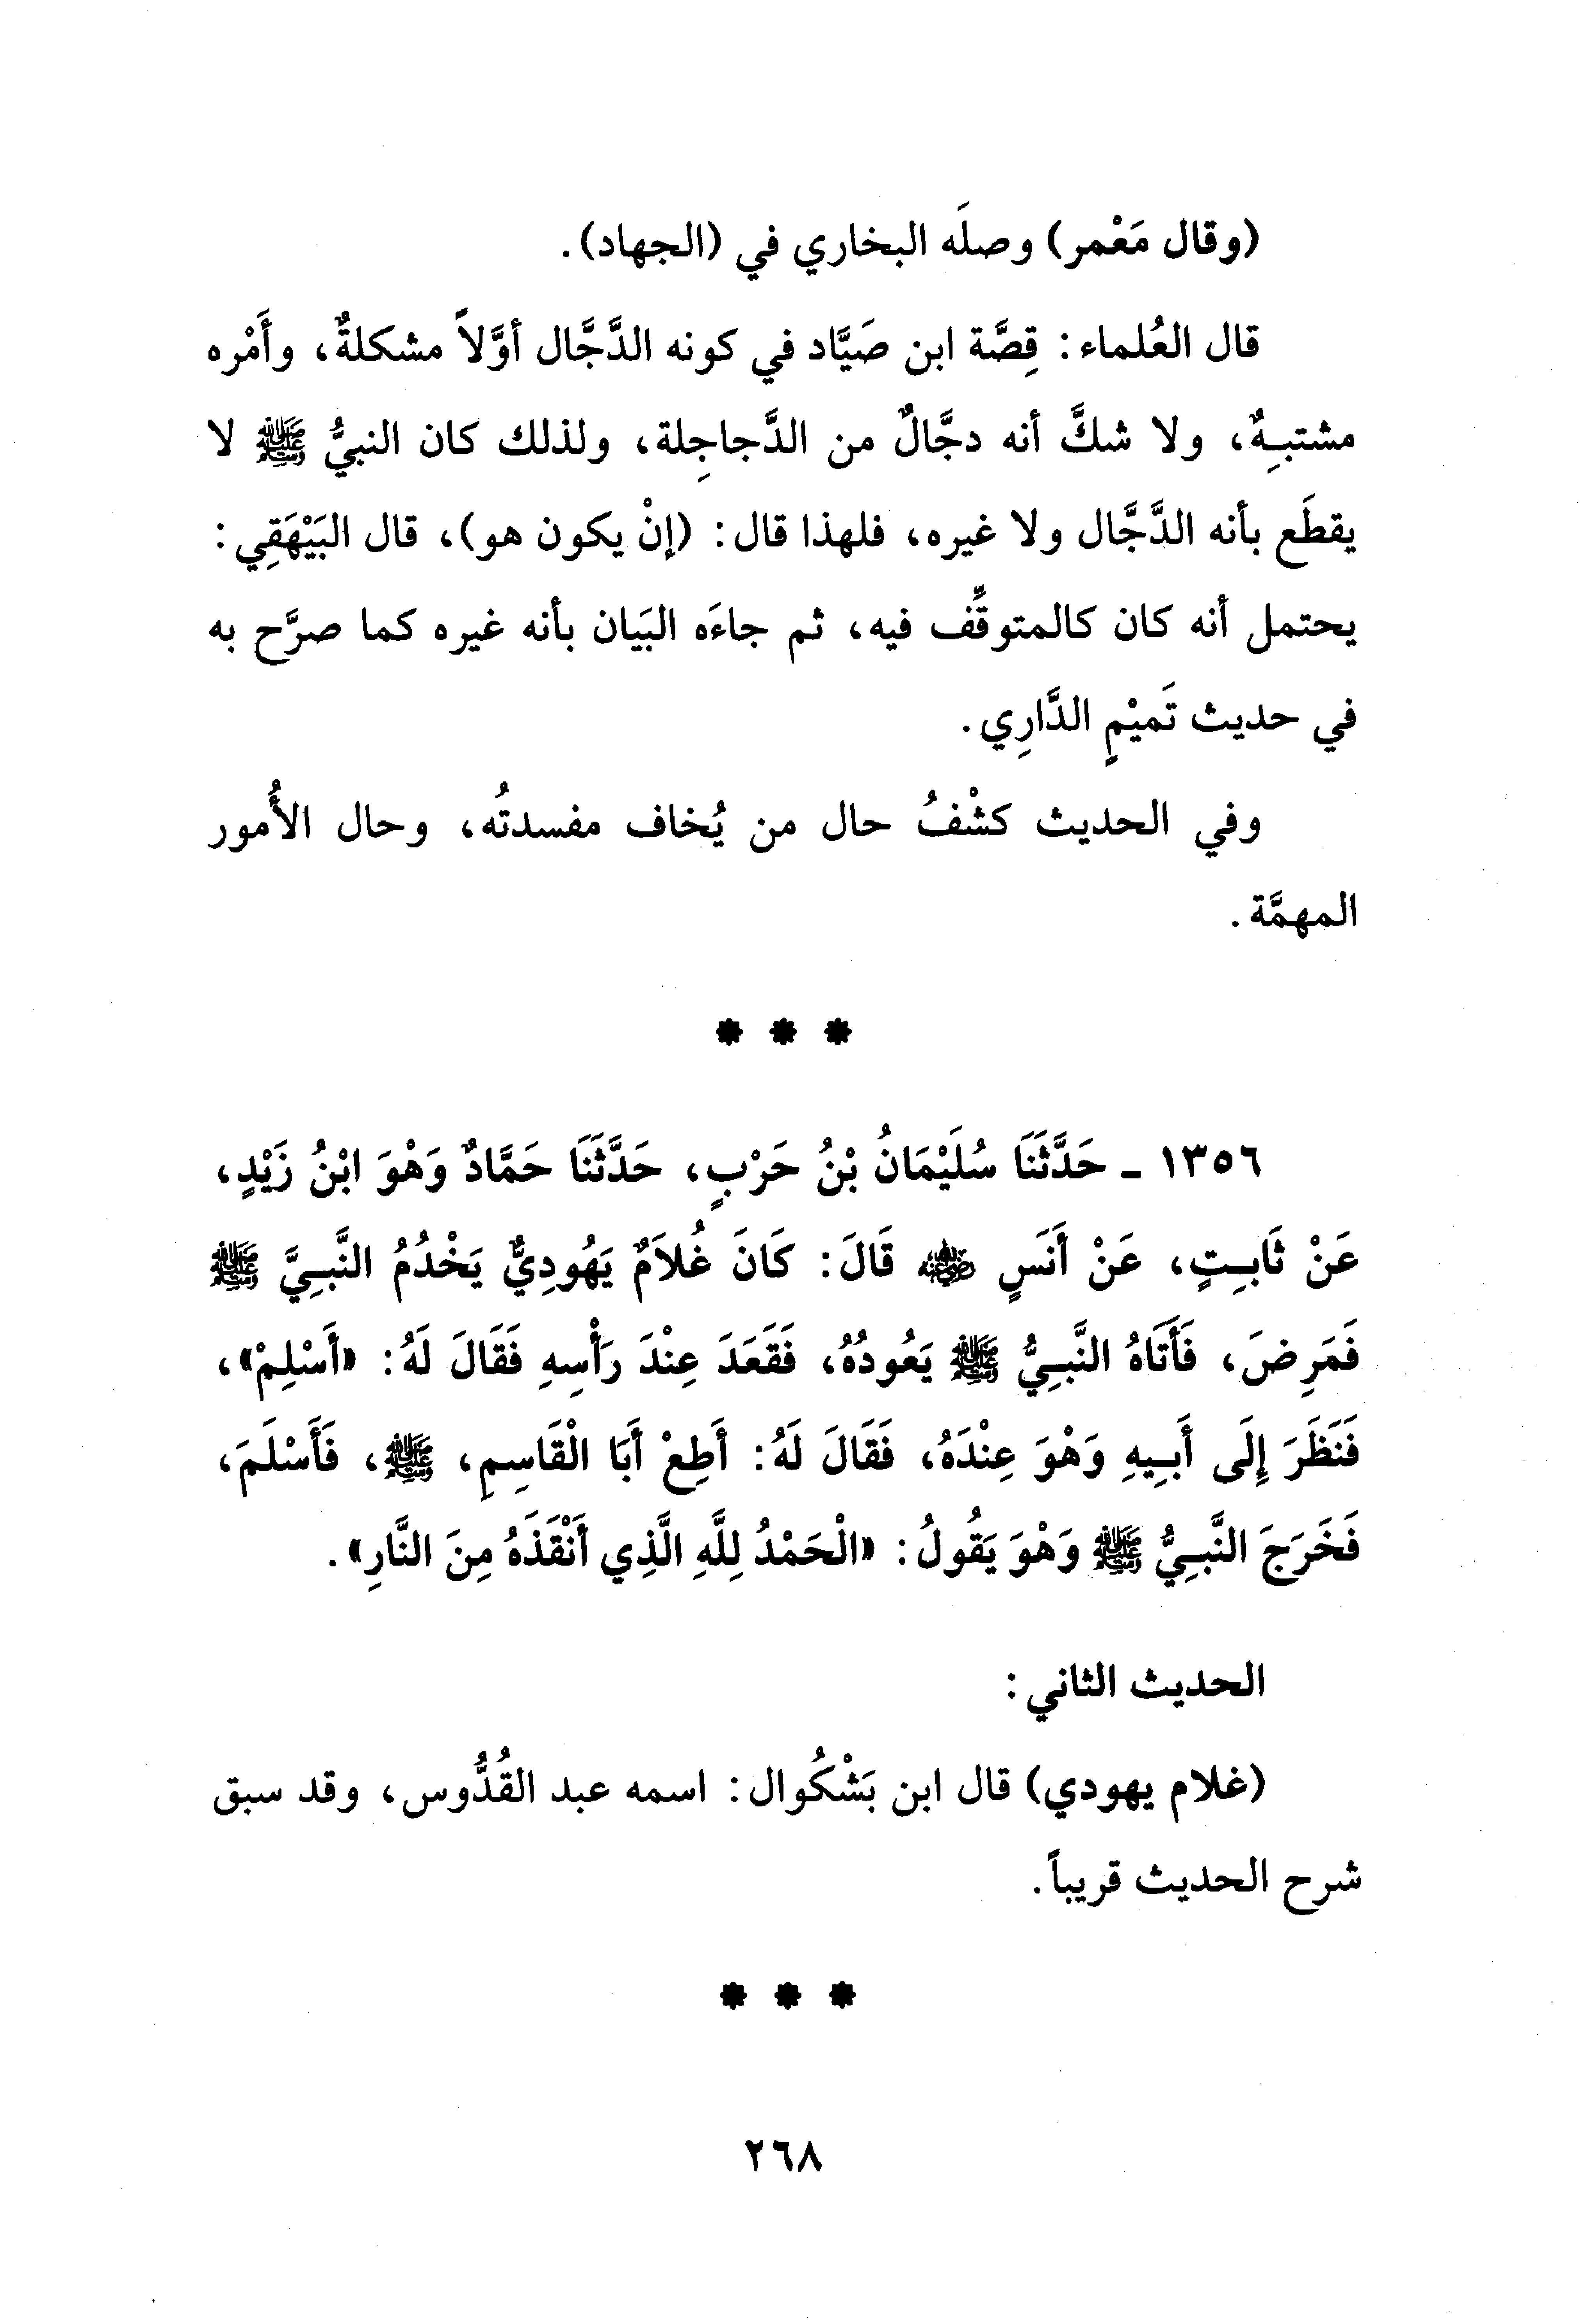 (وقال مَعْمر) وصلَه البخاري في (الجهاد).
قال العُلماء: قِصَّة ابن صَيَّاد في كونه الدَّجَّال أوَّلاً مشكلةٌ، وأَمْره
مشتبـِهٌ، ولا شكَّ أنه دجَّالٌ من الدَّجاجِلة، ولذلك كان النبيُّ ﷺ لا
يقطَع بأنه الدَّجَّال ولا غيره، فلهذا قال: (إنْ يكون هو)، قال البَيْهَقِي:
يحتمل أنه كان كالمتوقِّف فيه، ثم جاءَه البَيان بأنه غيره كما صرَّح به
في حديث تَميْمٍ الدَّارِي.
وفي الحديث كشْفُ حال من يُخاف مفسدتُه، وحال الأُمور
المهمَّة.
* * *
١٣٥٦ ـ حَدَّثَنَا سُلَيْمَانُ بْنُ حَرْبٍ، حَدَّثَنَا حَمَّادٌ وَهْوَ ابْنُ زَيْدٍ،
عَنْ ثَابـِتٍ، عَنْ أَنَسٍ ﵁ قَالَ: كَانَ غُلاَمٌ يَهُودِيٌّ يَخْدُمُ النَّبـِيَّ ﷺ
فَمَرِضَ، فَأَتَاهُ النَّبـِيُّ ﷺ يَعُودُهُ، فَقَعَدَ عِنْدَ رَأْسِهِ فَقَالَ لَهُ: «أَسْلِمْ»،
فَنَظَرَ إِلَى أَبـِيهِ وَهْوَ عِنْدَهُ، فَقَالَ لَهُ: أَطِعْ أَبَا الْقَاسِمِ، ﷺ، فَأَسْلَمَ،
فَخَرَجَ النَّبـِيُّ ﷺ وَهْوَ يَقُولُ: «الْحَمْدُ لِلَّهِ الَّذِي أَنْقَذَهُ مِنَ النَّارِ».
الحديث الثاني:
(غلام يهودي) قال ابن بَشْكُوال: اسمه عبد القُدُّوس، وقد سبق
شرح الحديث قريباً.
* * *
٢٦٨